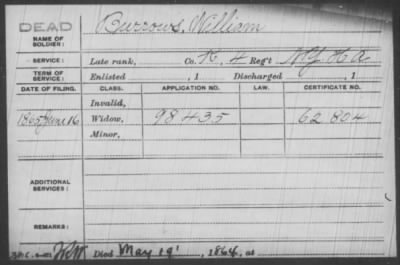 DEAD
NAME OF SOLDIER: Burrows, William
SERVICE: Late rank, Co. K, 4 Reg't N.Y. H.A.
TERM OF SERVICE: Enlisted , 1 Discharged , 1
DATE OF FILING. CLASS. APPLICATION NO. LAW. CERTIFICATE NO.
Invalid,
1865 June 16 Widow, 98435 62804
Minor,
ADDITIONAL SERVICES:
REMARKS:
Died May 19, 1864, at